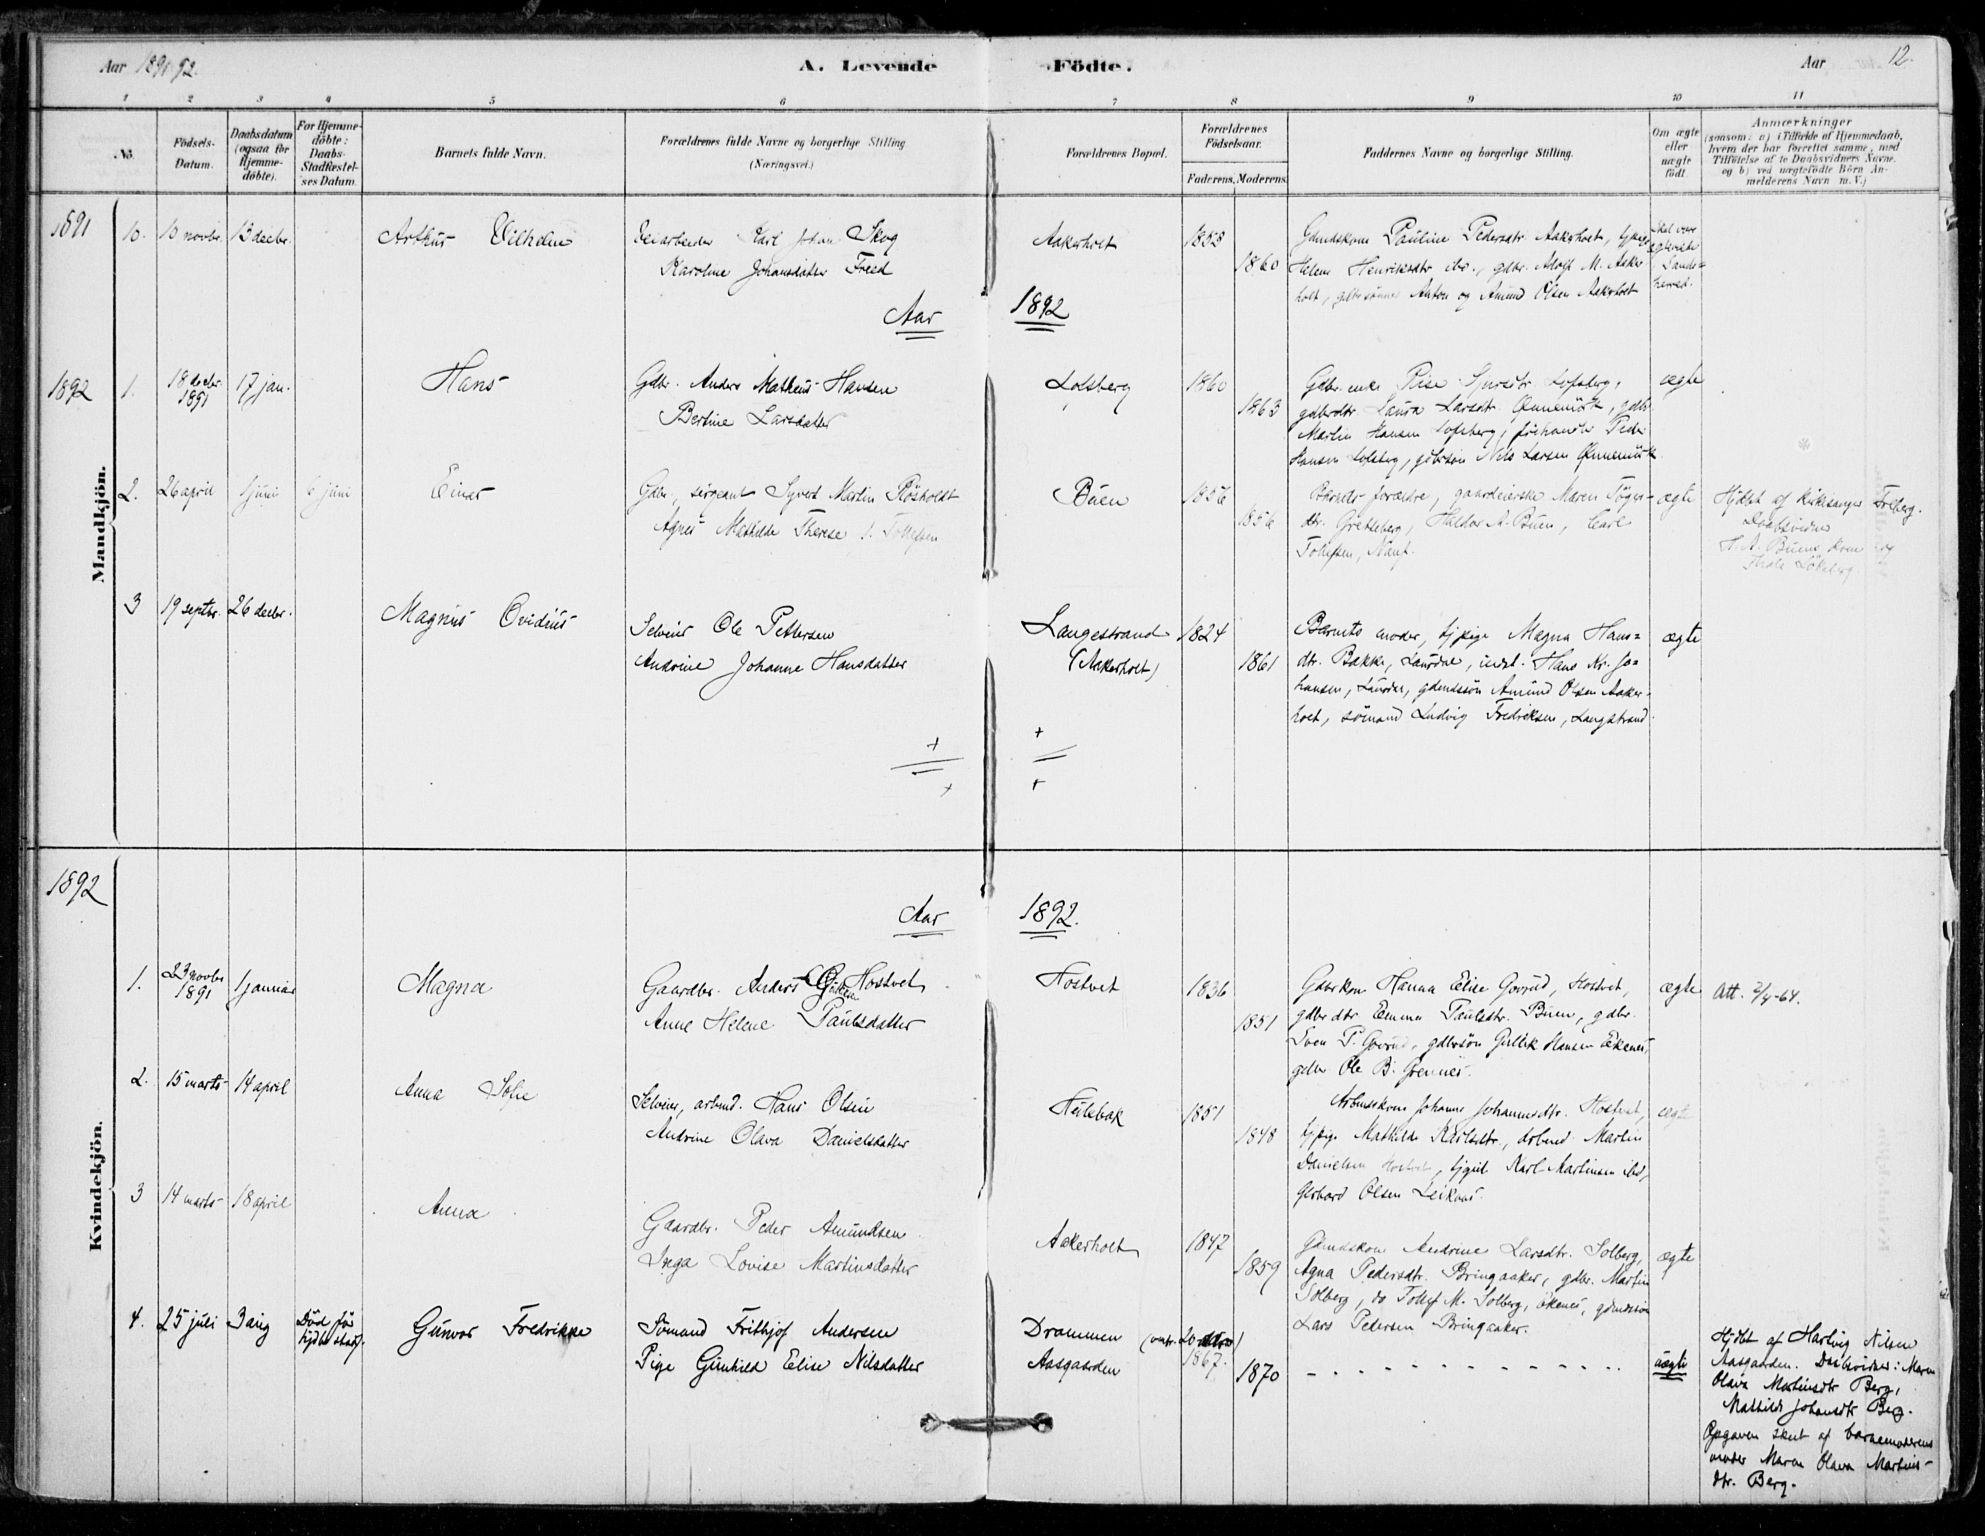 Aar 1891-92.
A. Levende Födte.
Aar 12.
1 2 3 4 5 6 7 8 9 10 11
No.
Födsels-Datum.
Daabsdatum (ogsaa for Hjemme-döbte).
For Hjemme-döbte: Daabs-Stadfæstel-ses Datum.
Barnets fulde Navn.
Forældrenes fulde Navne og borgerlige Stilling
(Næringsvei.)
Forældrenes Bopæl.
Forældrenes Födselsaar.
Faderens. Moderens.
Faddernes Navne og borgerlige Stilling.
Om ægte eller uægte födt.
Anmærkninger
(saasom: a) i Tilfælde af Hjemmedaab,
hvem der har forrettet samme, med
Tilföielse af to Daabsvidners Navne.
og b) ved uægtefödte Börn An-
melderens Navn m. V.)
Mandkjön.
1891 10. 10 novbr. 13 decbr. Arthur Vilhelm
Veiarbeider Karl Johan Skog
Karoline Johansdatter Freed
Aakerholt 1858 1860
Gdmdskone Pauline Pedersdtr Aakerholt, tjpige
Helene Henriksdtr ibd., gdbr. Adolf M. Aaker
holt, gdbrsønner Anton og Amund Olsen Aakerholt
Skal være
ægteviede
i Sande=
herred.
Aar 1892
1892 1. 18 decbr 1891 17 jan. Hans
Gdbr. Anders Mathias Hansen
Bertine Larsdatter
Lofsberg 1860 1863
Gdbr. enke Sjursdtr Lofsberg,
gdbrdtr Laura Larsdtr. Ønnemürk, gdbr.
Martin Hansen Lofsberg, Peder
Hansen Lofsberg, gdbrsøn Nils Larsen Ønnemürk
ægte
2. 26 april 1 juni 6 juni Einar
Gdbr, sergeant Syvert Martin Røsholdt
Agnes Mathilde Therese f. Tollefsen
Buen 1856 1856
Barnets forældre, gaardeierske Maren
dtr. Gretteberg, Haldor A. Buen, Carl
Tollefsen,
ægte
Hjdbt af kirkesanger Freberg.
Daabsvidner
H. A. Buens kone og
3 19 septbr. 26 decbr. Magnus Ovidius
Selveier Ole Pettersen
Andrine Johanne Hansdatter
Langestrand
(Aakerholt)
1824 1861
Barnets moder, tjpige Magna Hans=
dtr. Bakke, Laurdal, indst. Hans Kr. Jo=
hansen, Laurdal, gdmdssøn Amund Olsen Aaker-
holt, sømand Ludvig Fredriksen, Langstrand.
ægte
Kvindekjön.
1892
Aar 1892.
1. 23 novbr 1891 1 januar Magna
Gaardbr. Anders Hostvet
Anne Helene Paulsdatter
Hostvet 1836 1851
Gdbrkone Hanna Elise Govrud, Hostvet,
gdbrdtr Emma Paulsdtr. Buen, gdbr.
Sven P. Govrud, gdbrsøn Gullik Hansen Ekenes,
gdbr Ole B. Grennes.
ægte
Att. 2/4-64.
2. 15 marts 14 april Anna Sofie
Selveier, arbmd. Hans Olsen
Andrine Olava Danielsdatter
Heilebak 1851 1848
Arbmdskone Johanne Johannesdtr. Hostvet,
tjpige Mathilde Karlsdtr., arbmd Martin
Danielsen Hostvet, tjgut Karl Martinsen ibd,
Gerhard Olsen Leikvas.
ægte
3 14 marts 18 april Anna
Gaardbr. Peder Amundsen
Inga Lovise Martinsdatter
Aakerholt 1847 1859
Gdmdskone Andrine Larsdtr. Solberg,
Agna Pedersdtr. Bringaaker, gdbr. Martin
Solberg, do Tollef M. Solberg, Ekenes, gdmdssøn
Lars Pedersen Bringaaker.
ægte
4. 25 juli 3 aug Död før stadf. Gunvor Fredrikke
Sömand Frithjof Andersen
Pige Gunhild Elise Nilsdatter
Drammen
Aasgaarden
1867. 1870
uægte
Hjdbt af Hartvig Nilsen
Aasgaarden. Daabsvidner: Maren
Olava Martinsdtr Berg,
Mathilde Johansdtr Berg.
Opgaven skeet af barnemoderens
moder Maren Olava Martins-
dtr. Berg.